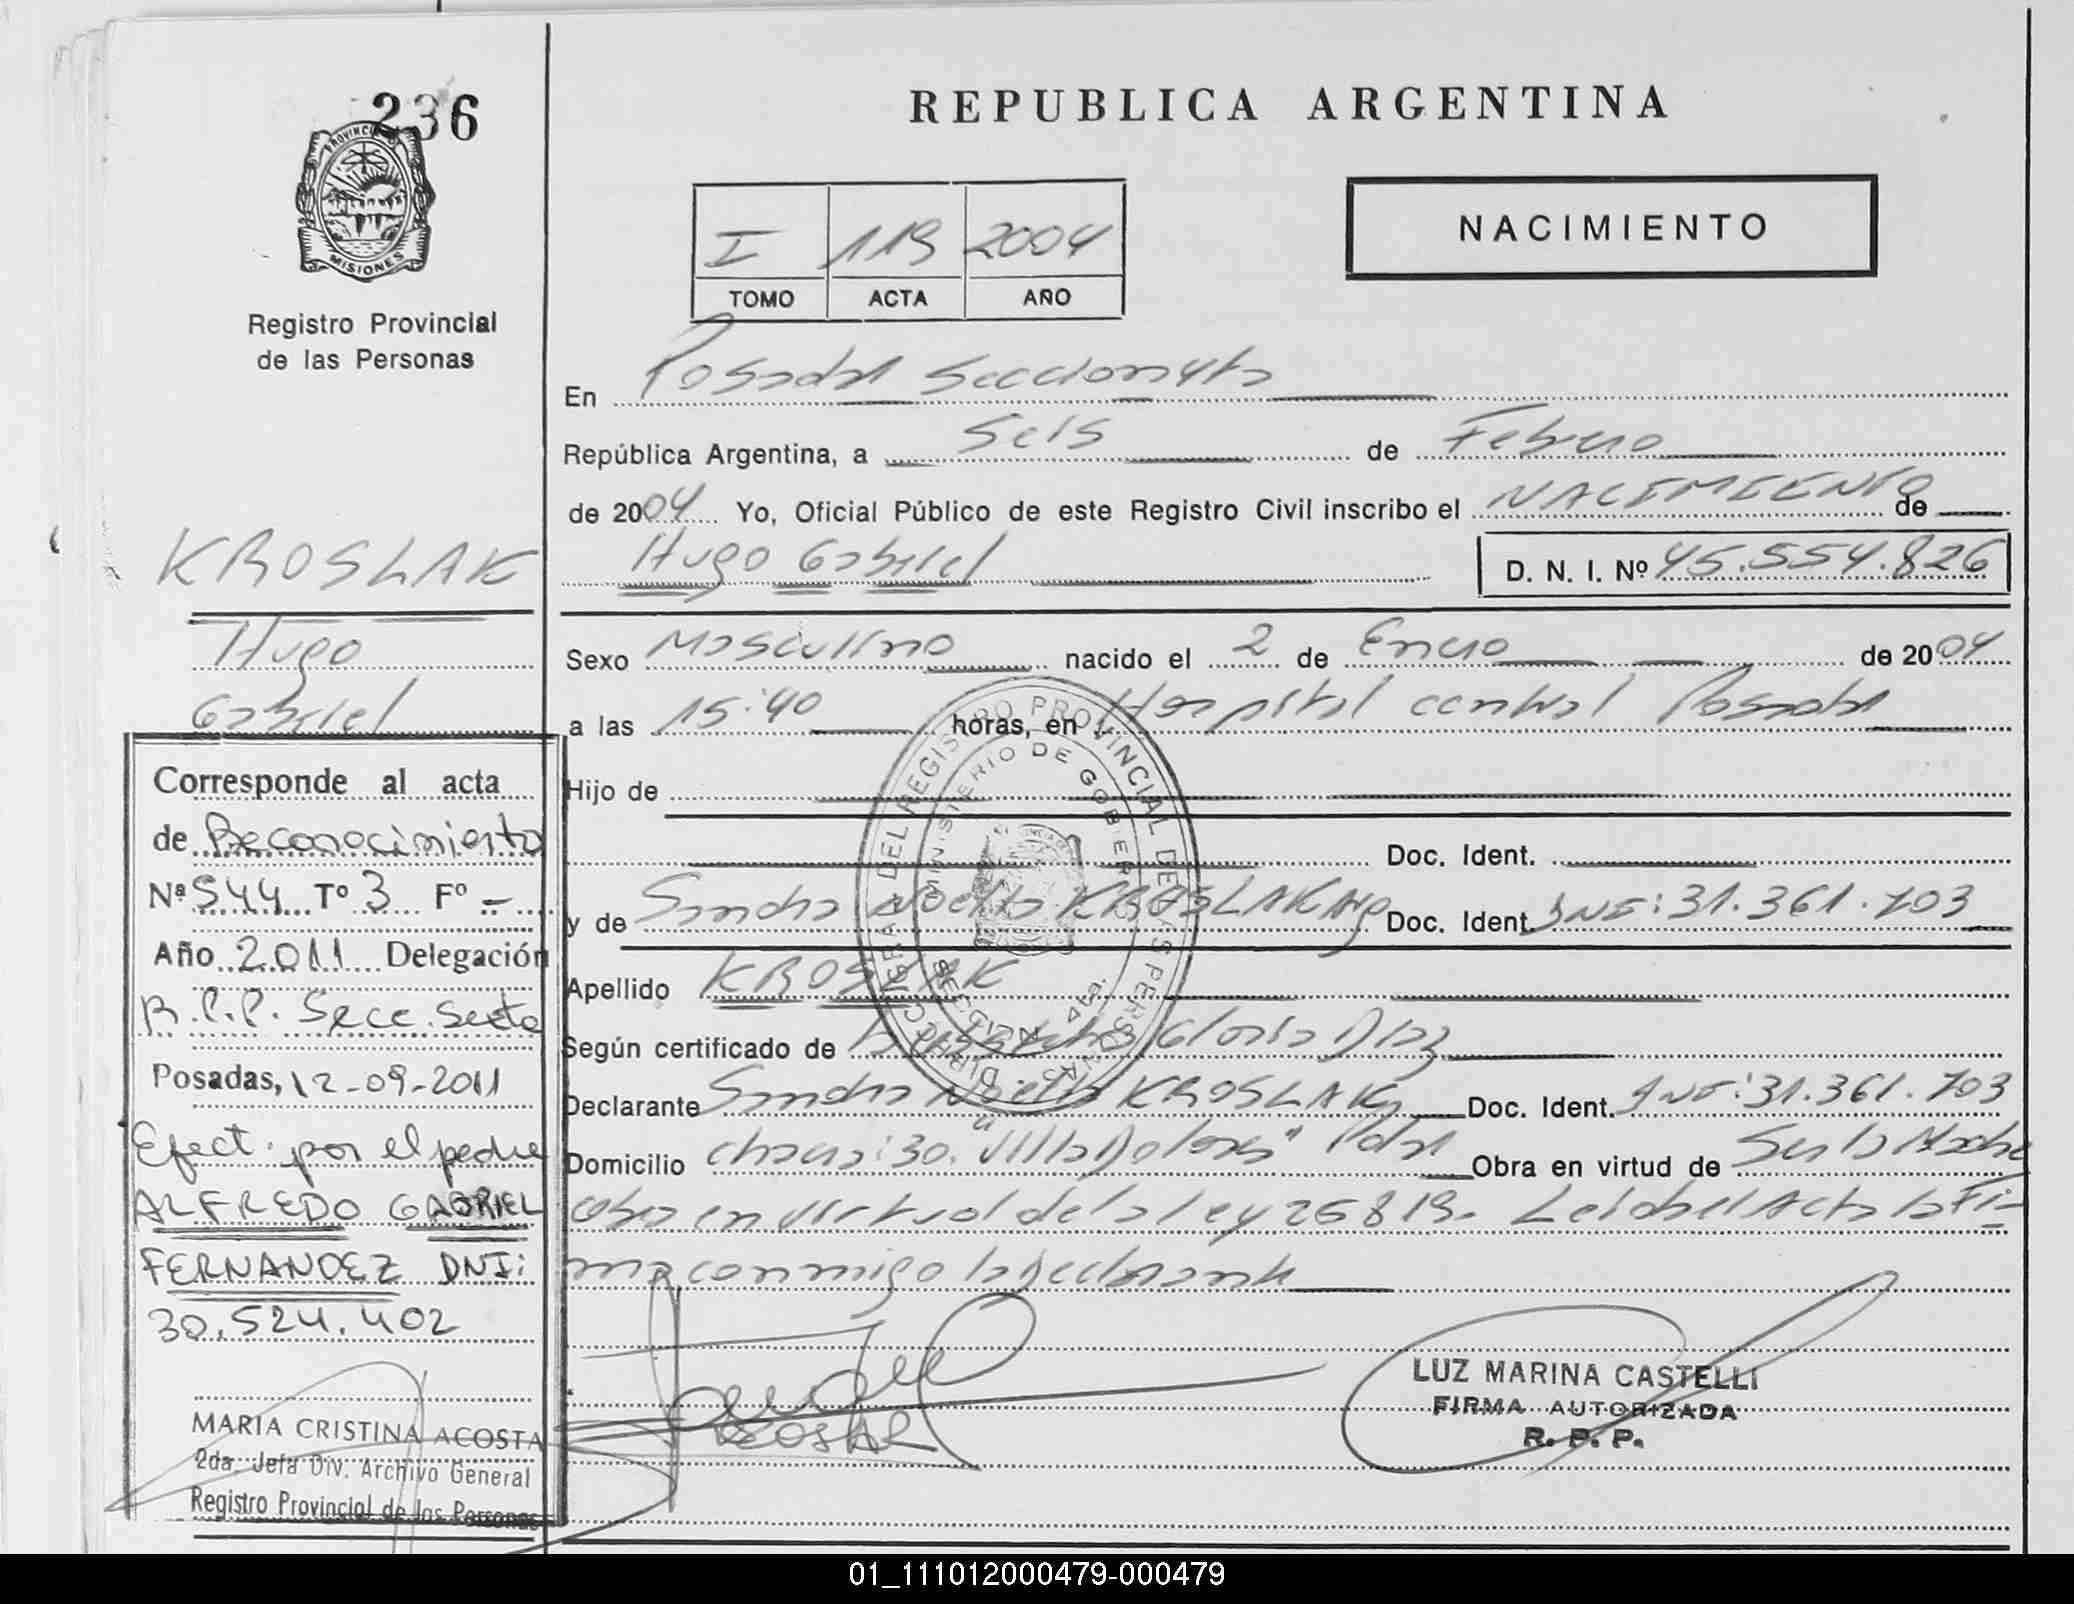 236
PROVINCIA DE
MISIONES
Registro Provincial
de las Personas
KROSLAK
Hugo
Gabriel
Corresponde al acta
de Reconocimiento
Nª 544 Tº 3 Fº -
Año 2011 Delegación
R.P.P. Secc. Sexta
Posadas, 12-09-2011
Efect. por el padre
ALFREDO GABRIEL
FERNANDEZ DNI:
30.524.402
MARIA CRISTINA ACOSTA
2da. Jefa Div. Archivo General
Registro Provincial de las Personas
REPUBLICA ARGENTINA
I 119 2004
TOMO ACTA AÑO
NACIMIENTO
En Posadas Seccion 4ta
República Argentina, a Seis de Febrero
de 2004 Yo, Oficial Público de este Registro Civil inscribo el NACIMIENTO de
Hugo Gabriel D. N. I. Nº 45.554.826
Sexo Masculino nacido el 2 de Enero de 2004
a las 15:40 horas, en Hospital central Posadas
Hijo de
Doc. Ident.
y de Sandra Noelia KROSLAK Arg Doc. Ident. DNI: 31.361.703
Apellido KROSLAK
Según certificado de Gloria Diaz
Declarante Sandra Noelia KROSLAK Doc. Ident. DNI: 31.361.703
Domicilio chacra: 30. "Villa Dolores" Pdas Obra en virtud de Ser la Madre
obra en virtud de la ley 25819. Leida el Acta la Fir-
ma conmigo la declarante
DIRECC. GRAL. DEL REGISTRO PROVINCIAL DE LAS PERSONAS
MINISTERIO DE GOBIERNO
SECC. 4ta.
KROSLAK
LUZ MARINA CASTELLI
FIRMA AUTORIZADA
R. P. P.
01_111012000479-000479